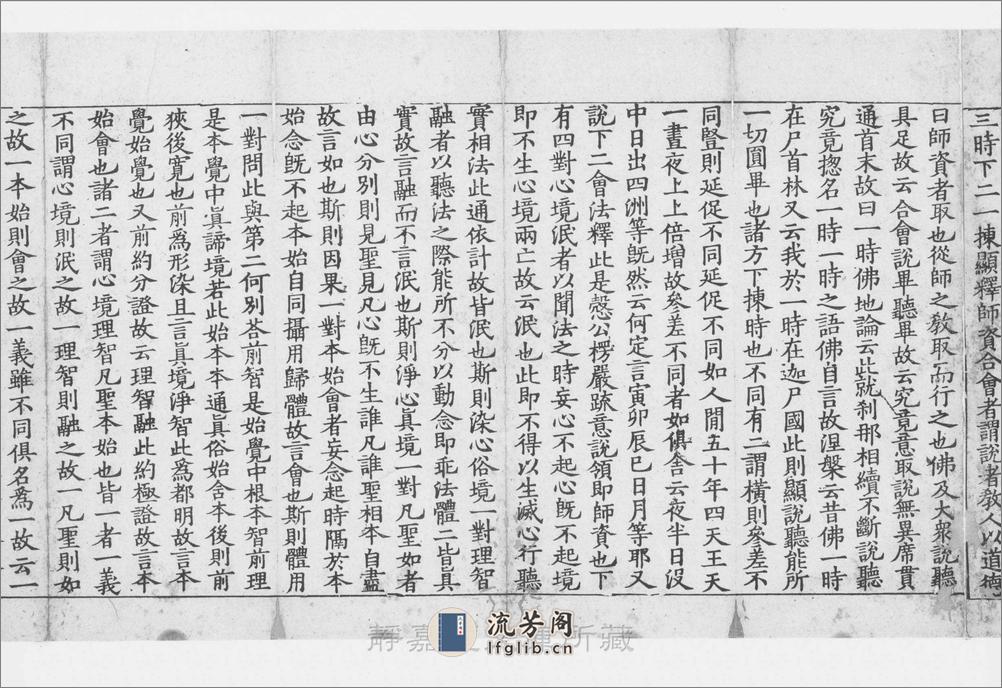 三時下二一揀顯釋師資合會者謂說者教人以道德
曰師資者取也從師之教取而行之也佛及大衆說聽
具足故云合會說畢聽畢故云究竟意取說無異席貫
通首末故曰一時佛地論云此就刹那相續不斷說聽
究竟揔名一時一時之語佛自言故涅槃云昔佛一時
在尸首林又云我於一時在迦尸國此則顯說聽能所
一切圓畢也諸方下揀時也不同有二謂橫則參差不
同豎則延促不同延促不同如人間五十年四天王天
一晝夜上上倍增故參差不同者如俱舍云夜半日沒
中日出四洲等旣然云何定言寅卯辰巳日月等耶又
說下二會法釋此是慤公楞嚴疏意說領即師資也下
有四對心境泯者以聞法之時妄心不起心旣不起境
即不生心境兩亡故云泯也此即不得以生滅心行聽
實相法此通依計故皆泯也斯則染心俗境一對理智
融者以聽法之際能所不分以動念即乖法體二皆眞
實故言融而不言泯也斯則淨心眞境一對凡聖如者
由心分別則見聖見凡心旣不生誰凡誰聖相本自盡
故言如也斯則因果一對本始會者妄念起時隔於本
始念旣不起本始自同攝用歸體故言會也斯則體用
一對問此與第二何別荅前智是始覺中根本智前理
是本覺中眞諦境若此始本本通眞俗始含本後則前
狹後寬也前爲形染且言眞境淨智此爲都明故言本
覺始覺也又前約分證故云理智融此約極證故言本
始會也諸二者謂心境理智凡聖本始也皆一者一義
不同謂心境則泯之故一理智則融之故一凡聖則如
之故一本始則會之故一義雖不同俱名爲一故云一
靜嘉 所藏
流芳阁
lfglib.cn